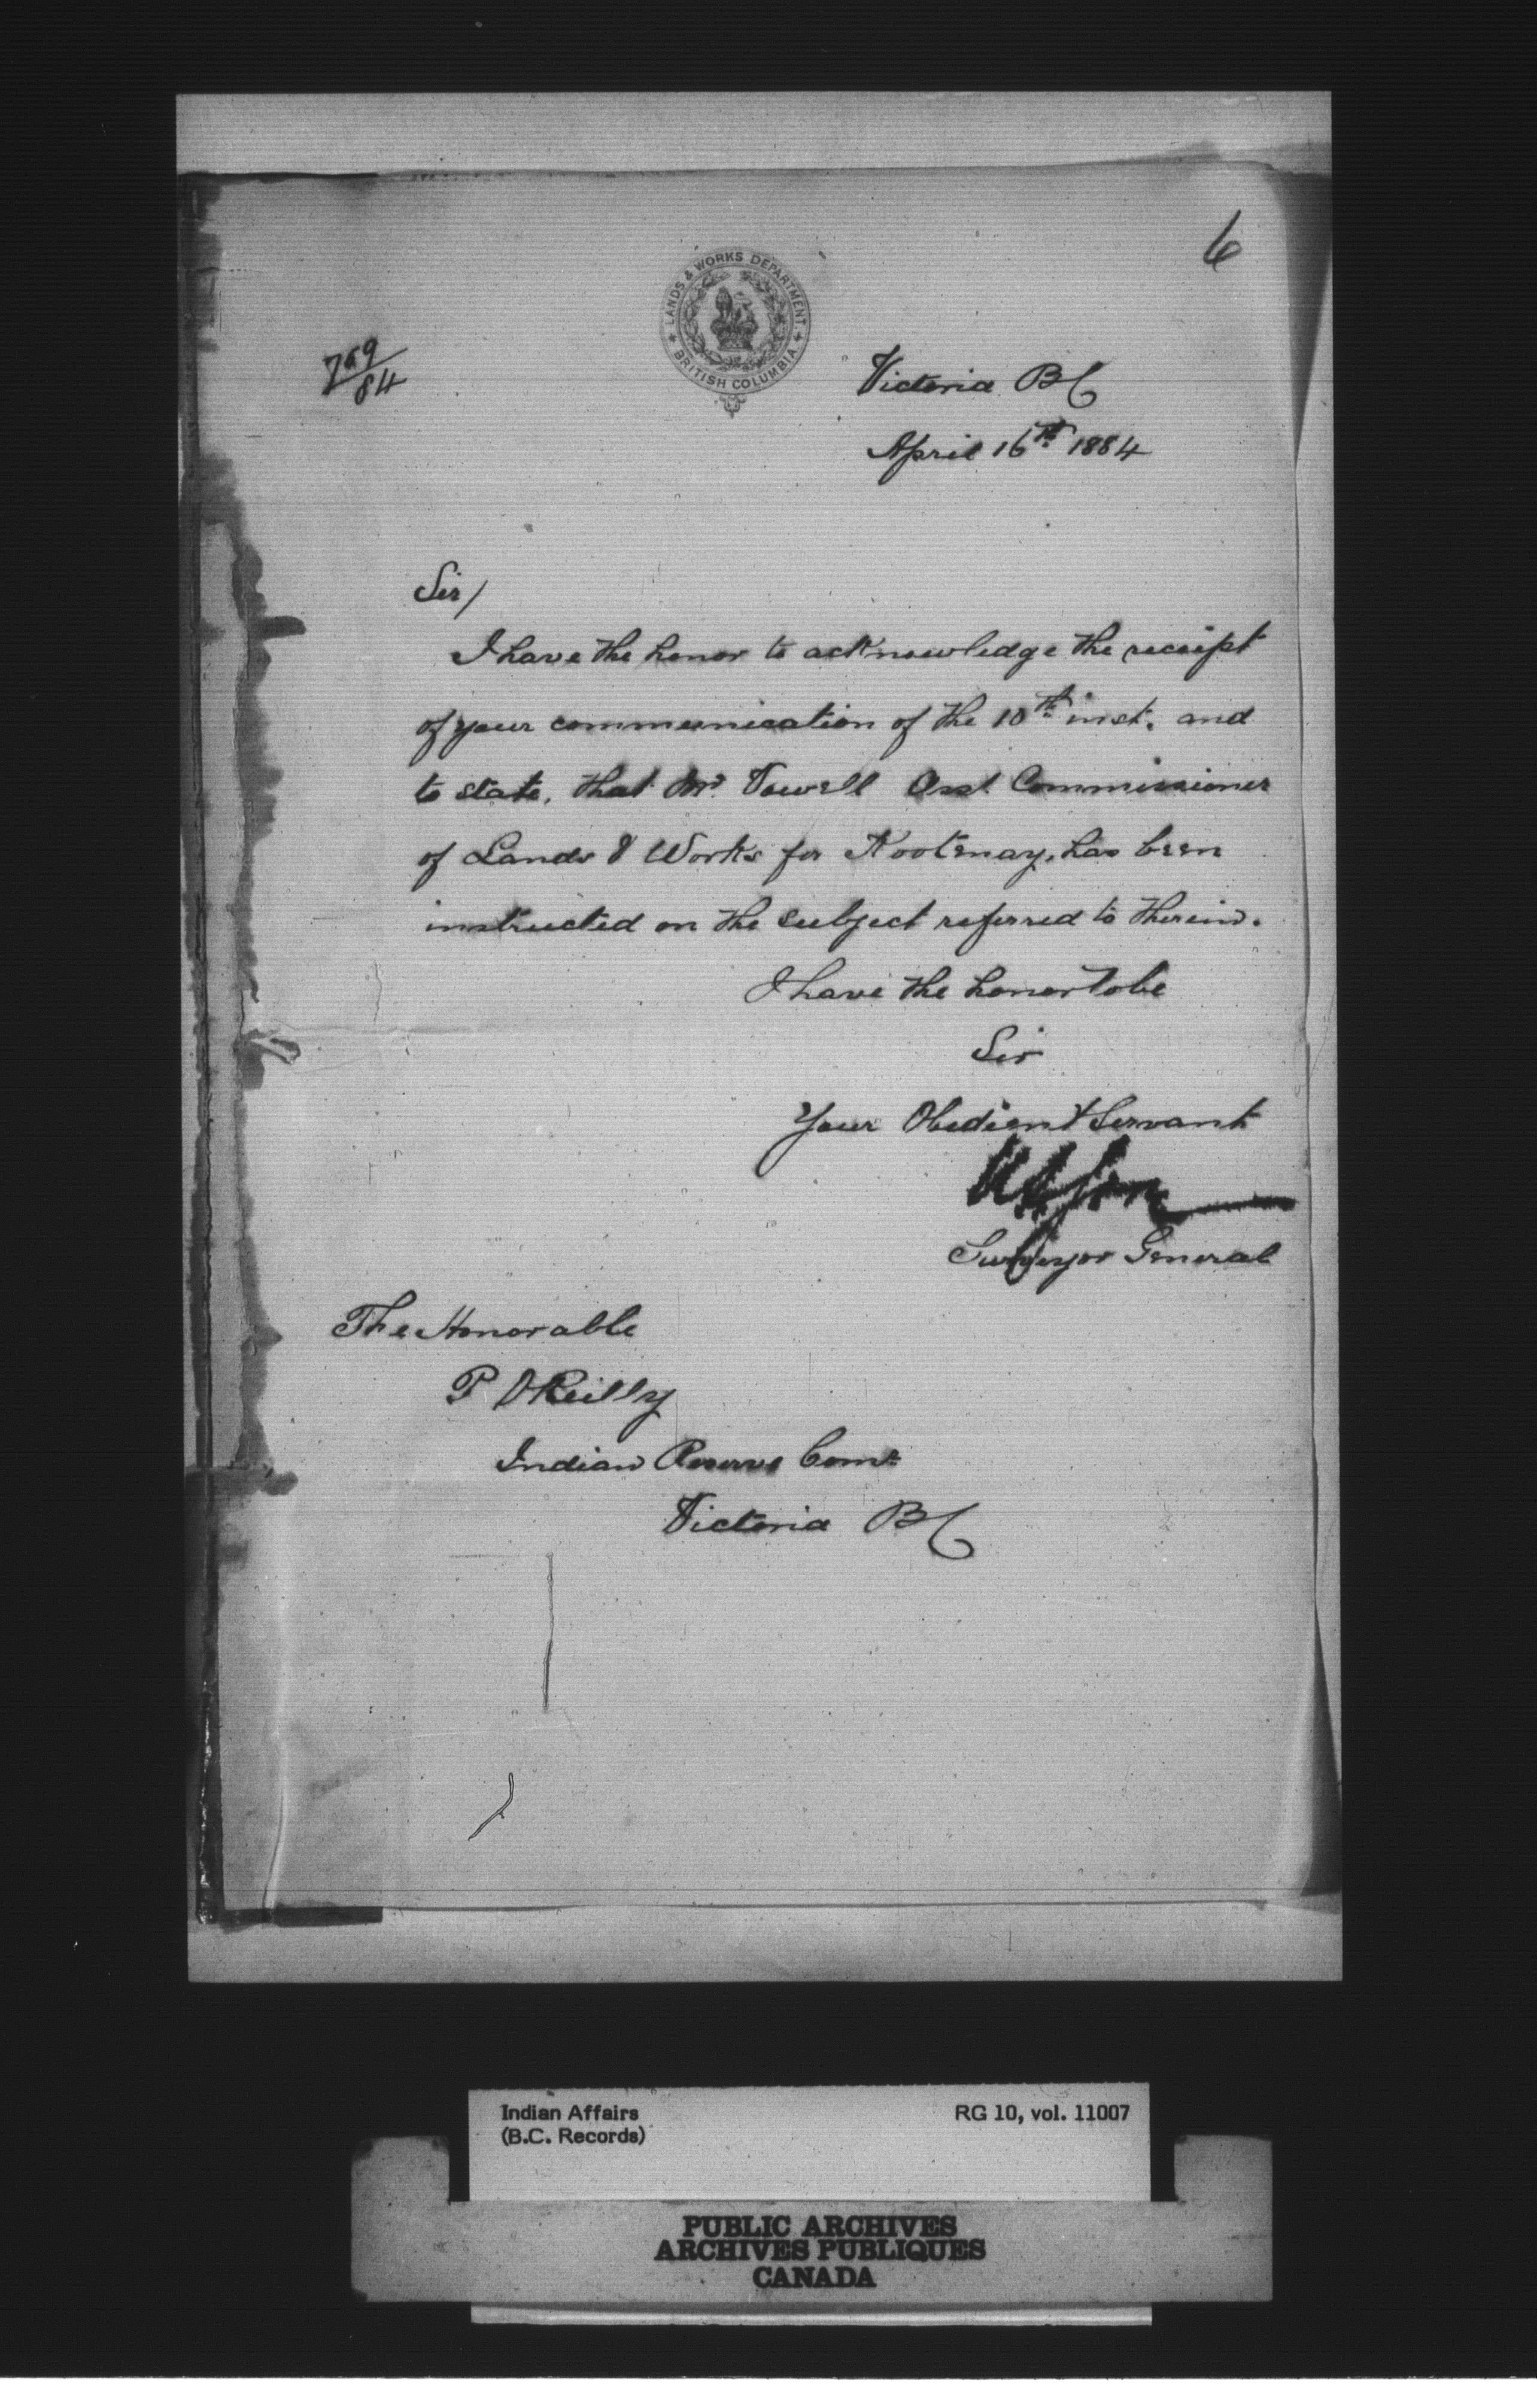 6
LANDS & WORKS DEPARTMENT
BRITISH COLUMBIA
759/84
Victoria BC
April 16th 1884
Sir/
I have the honor to acknowledge the receipt
of your communication of the 10th inst. and
to state, that Mr. Vowell Asst. Commissioner
of Lands & Works for Kootenay, has been
instructed on the subject referred to therein.
I have the honor to be
Sir
Your Obedient Servant
Surveyor General
The Honorable
P O'Reilly
Indian Reserve Comr
Victoria BC
Indian Affairs
(B.C. Records)
RG 10, vol. 11007
PUBLIC ARCHIVES
ARCHIVES PUBLIQUES
CANADA